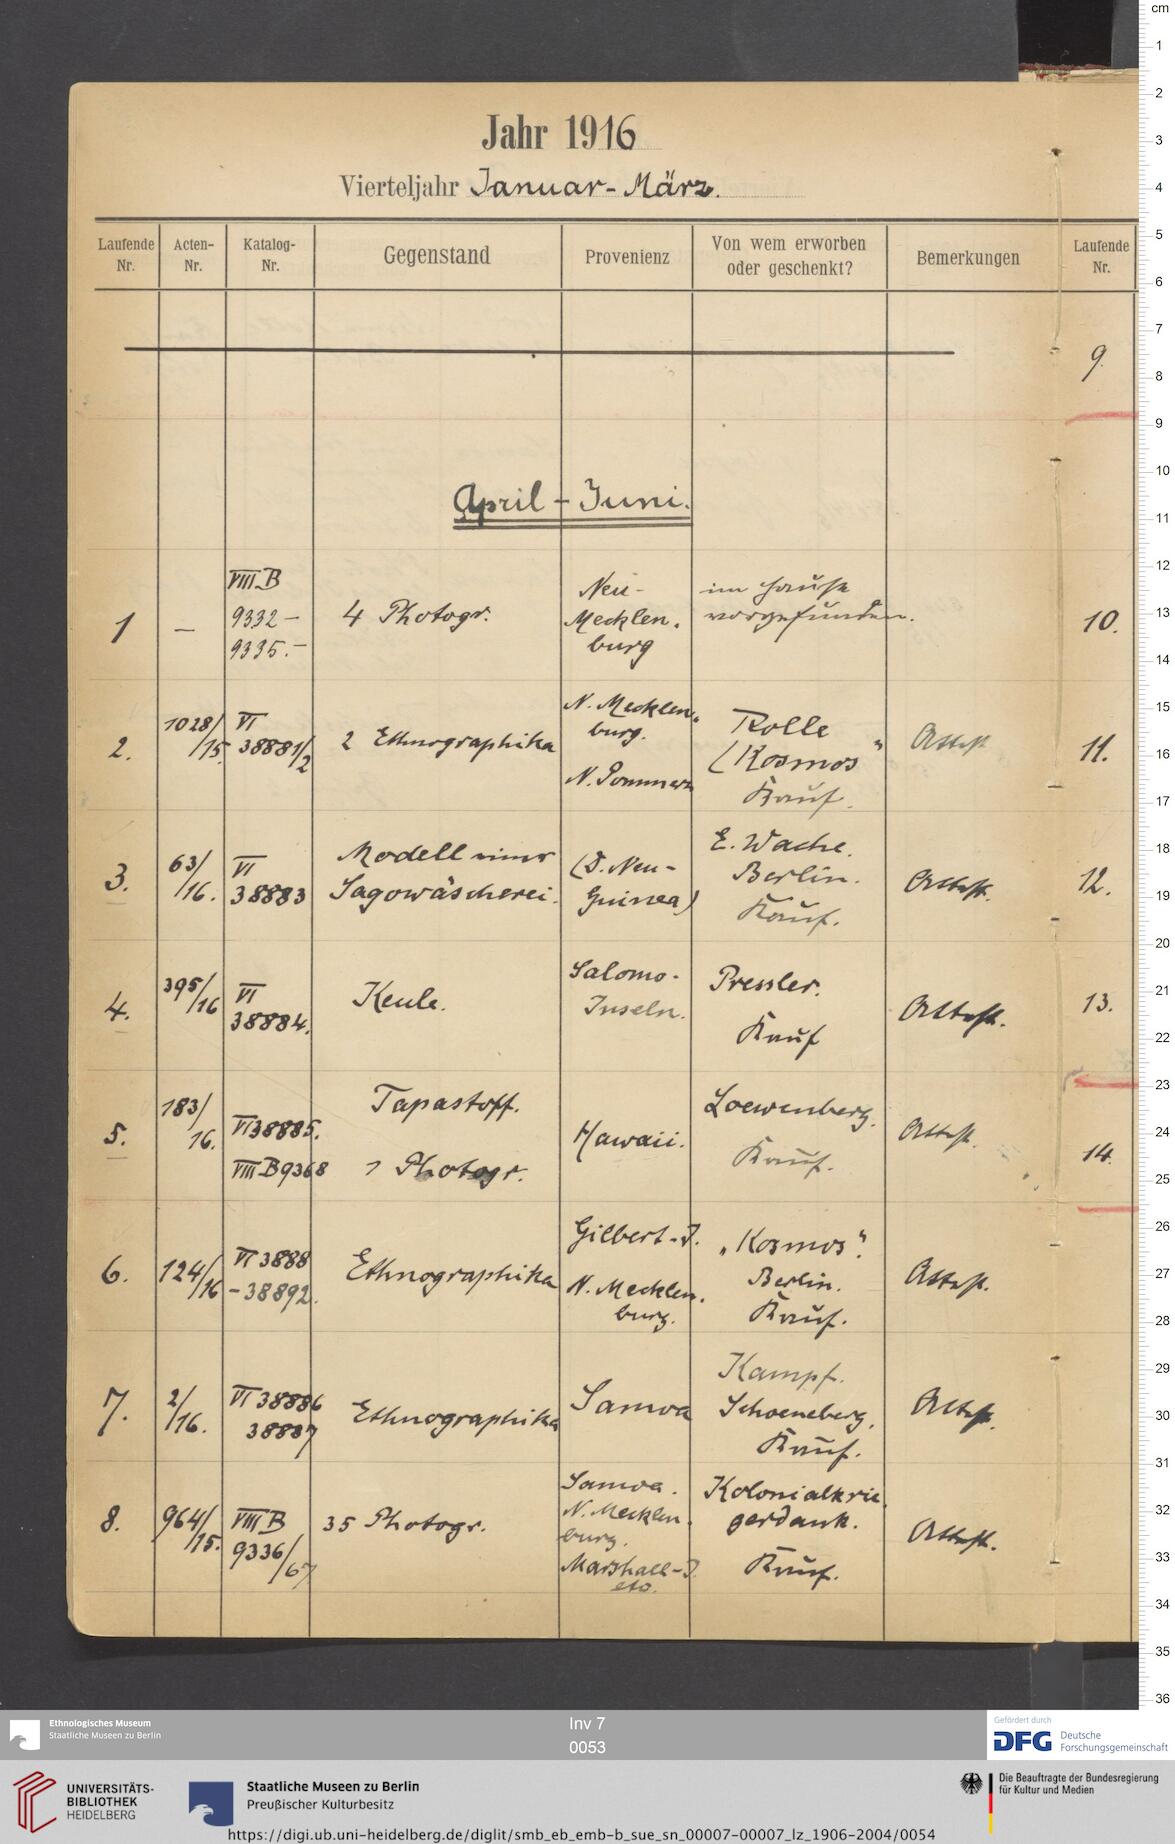 Jahr 1916
Vierteljahr Januar - März.
Laufende Nr.
Acten-Nr.
Katalog-Nr.
Gegenstand
Provenienz
Von wem erworben oder geschenkt?
Bemerkungen
Laufende Nr.
9.
April - Juni.
1
—
VIII B
9332 -
9335. -
4 Photogr.
Neu-
Mecklen.
burg
im Hause
vorgefunden.
10.
2.
1028/
/15.
VI
38881/2
2 Ethnographika
N. Mecklen.
burg.
N. Pommern
Rolle
(Kosmos"
Kauf.
Attest
11.
3.
63/
/16.
VI
38883
Modell einer
Sagowäscherei.
(D. Neu-
Guinea)
E. Wache.
Berlin.
Kauf.
Attest.
12.
4.
395/
/16
VI
38884.
Keule.
Salomo-
Inseln.
Pressler.
Kauf
Attest.
13.
5.
183/
16.
VI 38885.
VIII B 9368
Tapastoff.
1 Photogr.
Hawaii.
Loewenberg.
Kauf.
Attest.
14.
6.
124/
/16
VI 3888
- 38892.
Ethnographika
Gilbert-I.
N. Mecklen.
burg.
„Kosmos".
Berlin.
Kauf.
Attest.
7.
2/
/16.
VI 38886
38887
Ethnographika
Samoa
Kampf.
Schoeneberg.
Kauf.
Attest.
8.
964/
/15.
VIII B
9336/
/67
35 Photogr.
Samoa.
N. Mecklen.
burg.
Marshall-I.
etc.
Kolonialkrie
gerdank.
Kauf.
Attest.
cm
1
2
3
4
5
6
7
8
9
10
11
12
13
14
15
16
17
18
19
20
21
22
23
24
25
26
27
28
29
30
31
32
33
34
35
36
Ethnologisches Museum
Staatliche Museen zu Berlin
Inv 7
0053
Gefördert durch
DFG Deutsche
Forschungsgemeinschaft
UNIVERSITÄTS-
BIBLIOTHEK
HEIDELBERG
Staatliche Museen zu Berlin
Preußischer Kulturbesitz
Die Beauftragte der Bundesregierung
für Kultur und Medien
https://digi.ub.uni-heidelberg.de/diglit/smb_eb_emb-b_sue_sn_00007-00007_lz_1906-2004/0054